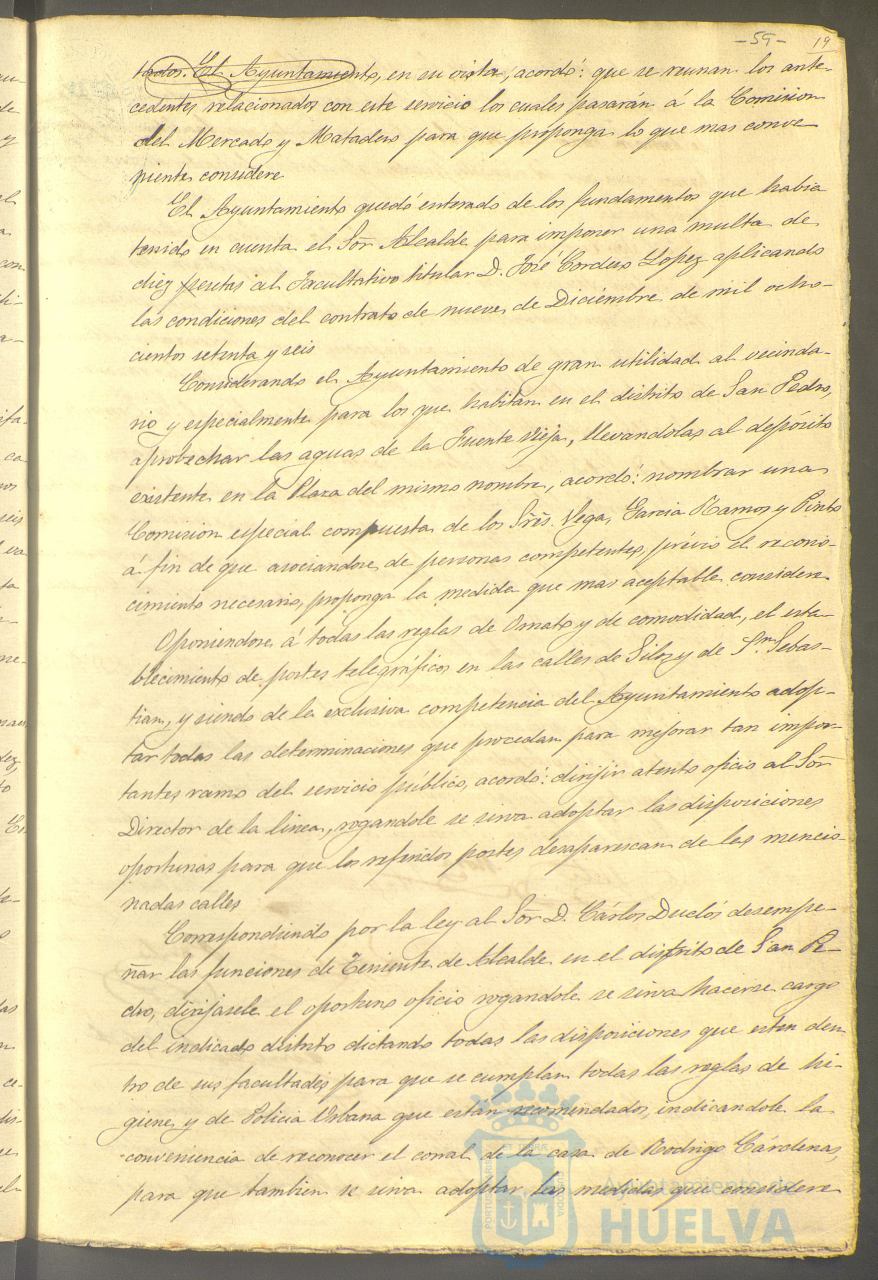 -59- 19
tados. El Ayuntamiento, en su vista, acordó: que se reunan los ante-
cedentes relacionados con este servicio los cuales pasarán á la Comision
del Mercado y Matadero para que proponga lo que mas conve-
niente considere
El Ayuntamiento quedó enterado de los fundamentos que habia
tenido en cuenta el Sor̃ Alcalde para imponer una multa de
diez pesetas al Facultativo titular D. José Cordero Lopez aplicando
las condiciones del contrato de nueve de Diciembre de mil ocho-
cientos setenta y seis
Considerando el Ayuntamiento de gran utilidad al vecinda-
rio y especialmente para los que habitan en el distrito de San Pedro,
aprobechar las aguas de la Fuente Vieja, llevandolas al depósito
existente en la Plaza del mismo nombre, acordó: nombrar una
Comision especial compuesta de los Srẽs. Vega, Garcia Ramos y Pinto
á fin de que asociandose de personas competentes, prévio el recono-
cimiento necesario, proponga la medida que mas aceptable considere
Oponiendose á todas las reglas de Ornato y de comodidad, el esta-
blecimiento de postes telegráficos en las calles de Silos y de Sn. Sebas-
tian, y siendo de la exclusiva competencia del Ayuntamiento adop-
tar todas las determinaciones que procedan para mejorar tan impor-
tantes ramo del servicio público, acordó: dirijir atento oficio al Sor̃
Director de la linea, rogandole se sirva adoptar las disposiciones
oportunas para que los referidos postes desaparescan de las mencio-
nadas calles
Correspondiendo por la ley al Sor̃ D. Cárlos Duclós desempe-
ñar las funciones de Teniente de Alcalde en el distrito de San Pe-
dro, dirijasele el oportuno oficio rogandole se sirva hacerse cargo
del indicado distrito dictando todas las disposiciones que esten den-
tro de sus facultades para que se cumplan todas las reglas de hi-
giene y de Policia Urbana que están recomendadas, indicandole la
conveniencia de reconocer el corral de la casa de Rodrigo Cárdenas,
para que tambien se sirva adoptar las medidas que considere
Ayuntamiento de
HUELVA